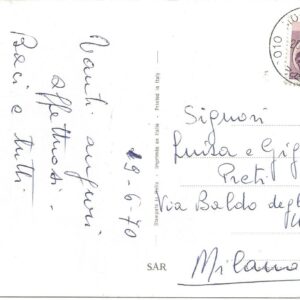 Tanti auguri
affettuosi -
Baci a tutti
19-6-70
Stampato in Italia - Imprimée en Italie - Printed in Italy
SAR
010
Signori
Luisa e Gig
Preti
Via Baldo degl
Milano